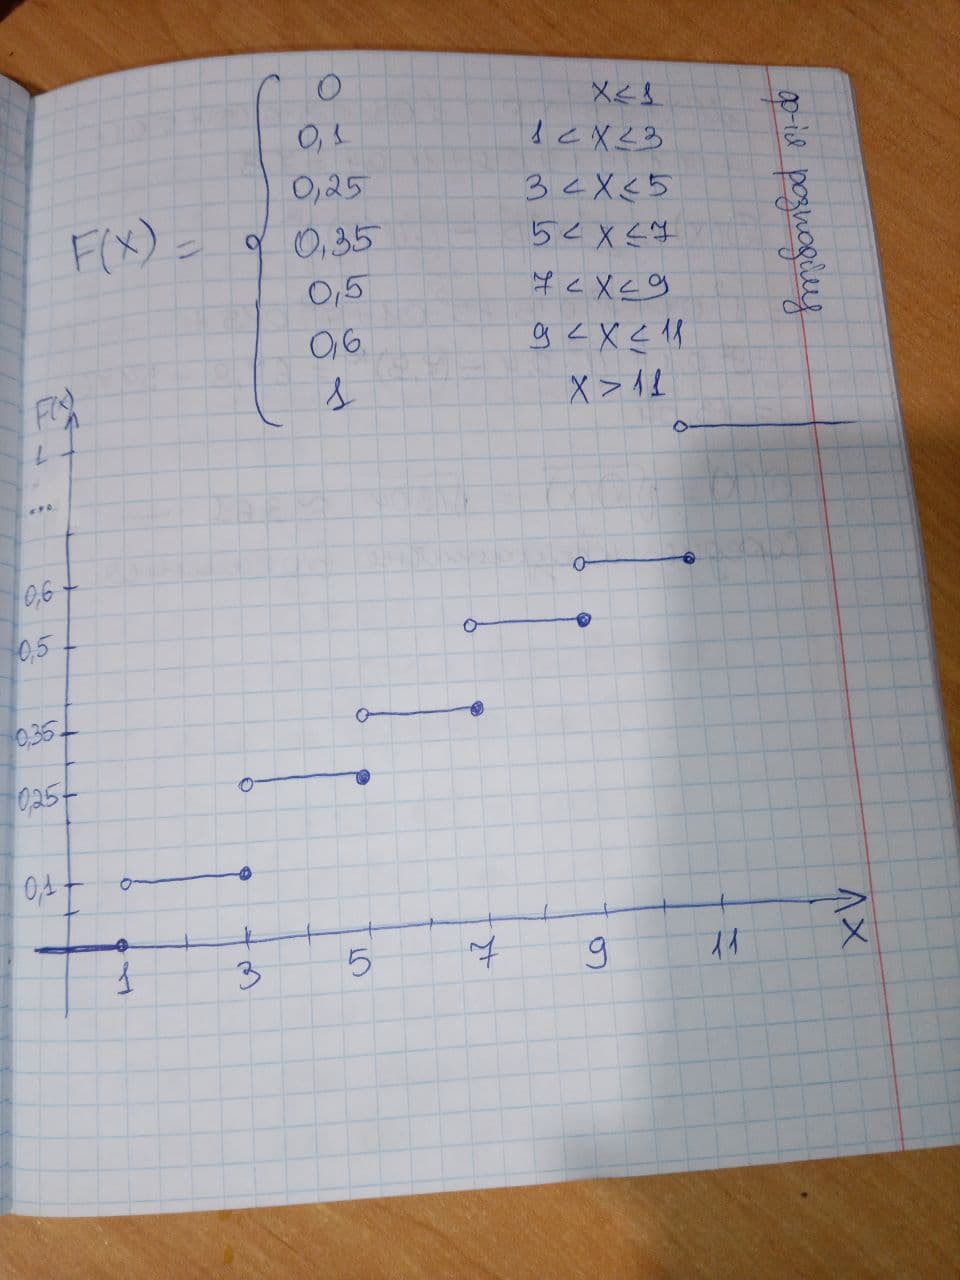 F(x) =
0 x ≤ 1
0,1 1 < x ≤ 3
0,25 3 < x ≤ 5
0,35 5 < x ≤ 7
0,5 7 < x ≤ 9
0,6 9 < x ≤ 11
1 x > 11
ф-ія розподілу
F(x)
1
...
0,6
0,5
0,35
0,25
0,1
1 3 5 7 9 11 X